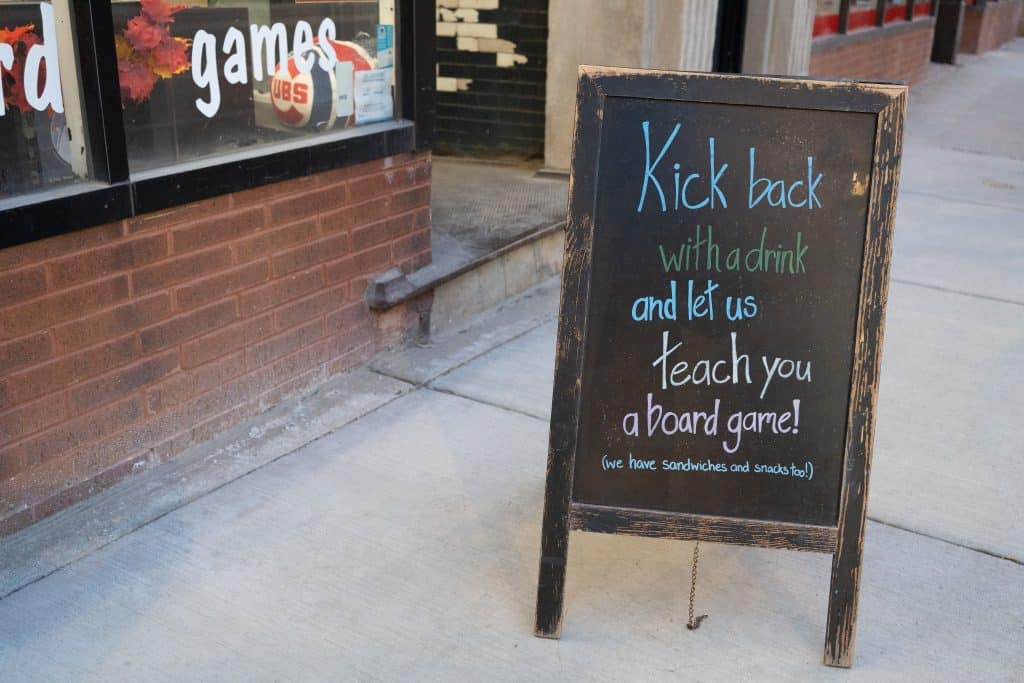 rd games
UBS
Kick back
with a drink
and let us
teach you
a board game!
(we have sandwiches and snacks too!)